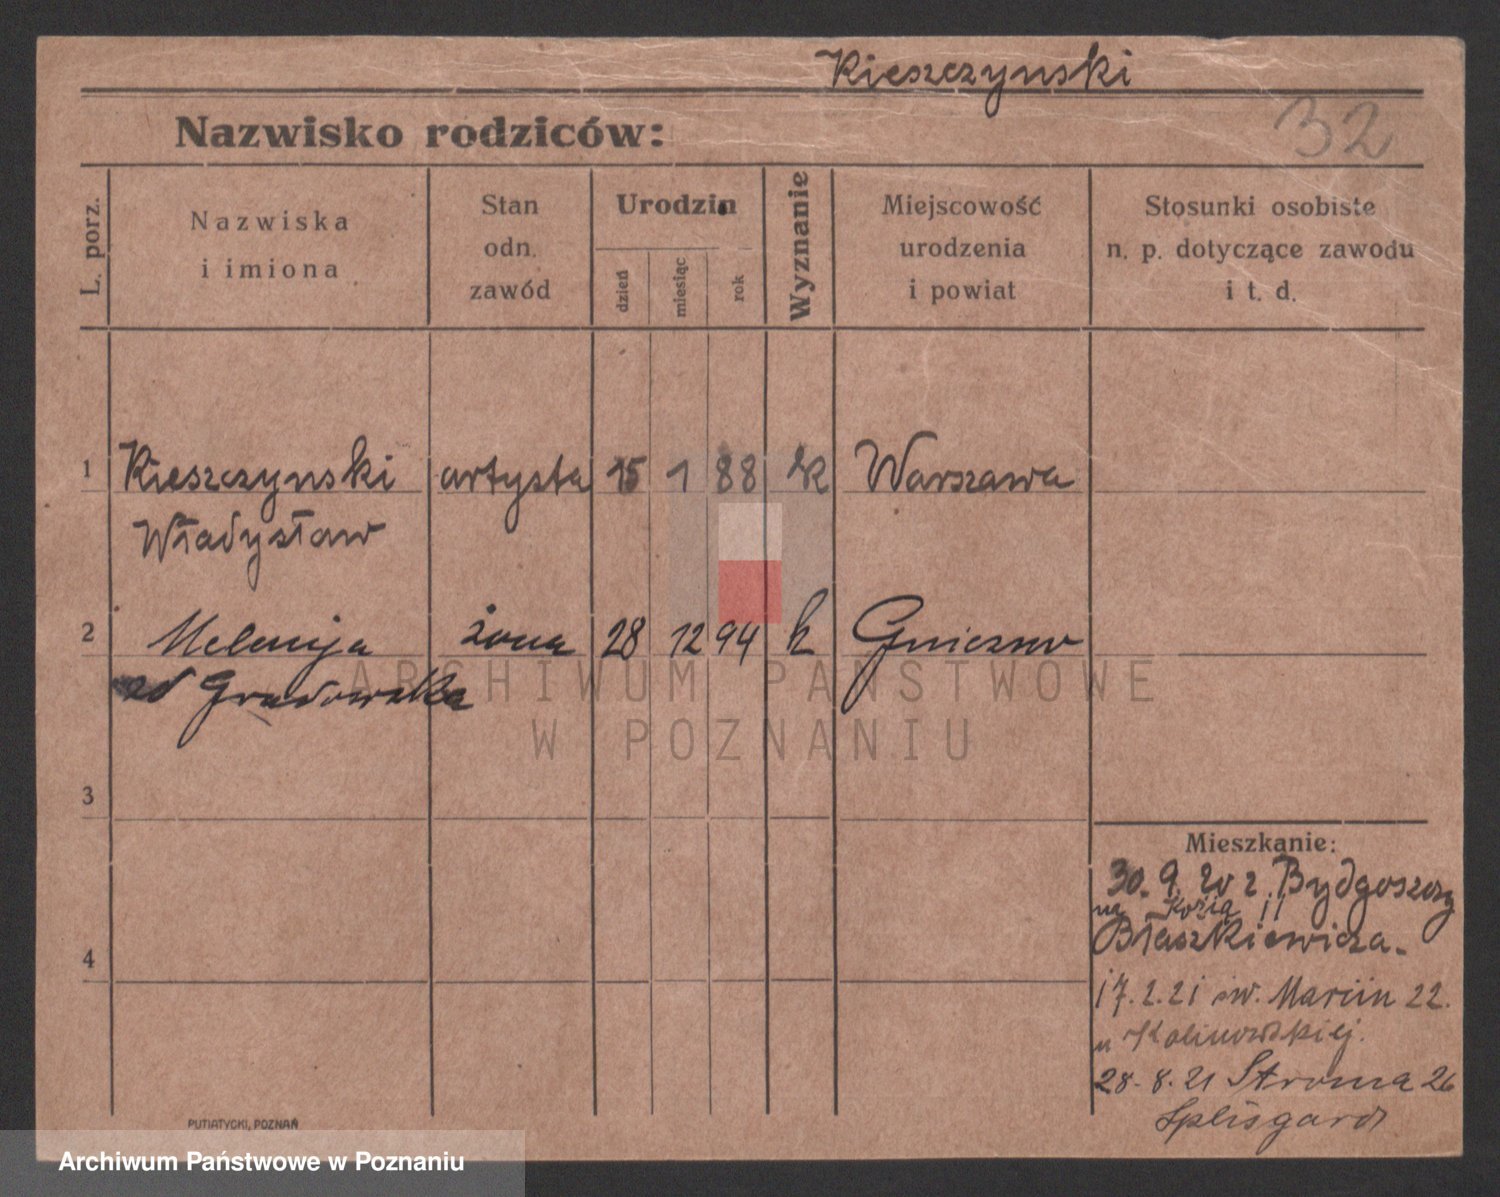 Kieszczynski
32
Nazwisko rodziców:
L. porz.
Nazwiska
i imiona
Stan
odn.
zawód
Urodzin
dzień
miesiąc
rok
Wyznanie
Miejscowość
urodzenia
i powiat
Stosunki osobiste
n. p. dotyczące zawodu
i t. d.
1 Kieszczynski artysta 15 1 88 rk Warszawa
Władysław
2 Melanija żona 28 12 94 k Gniezno
zd Gradowska
ARCHIWUM PAŃSTWOWE
W POZNANIU
3
4
Mieszkanie:
30. 9. 20 z Bydgoszczy
na Kozią 11
Błaszkiewicza.
17. 2. 21 św. Marcin 22.
u Kalinowskiej.
28. 8. 21 Stroma 26
Splisgard
PUTIATYCKI, POZNAŃ
Archiwum Państwowe w Poznaniu